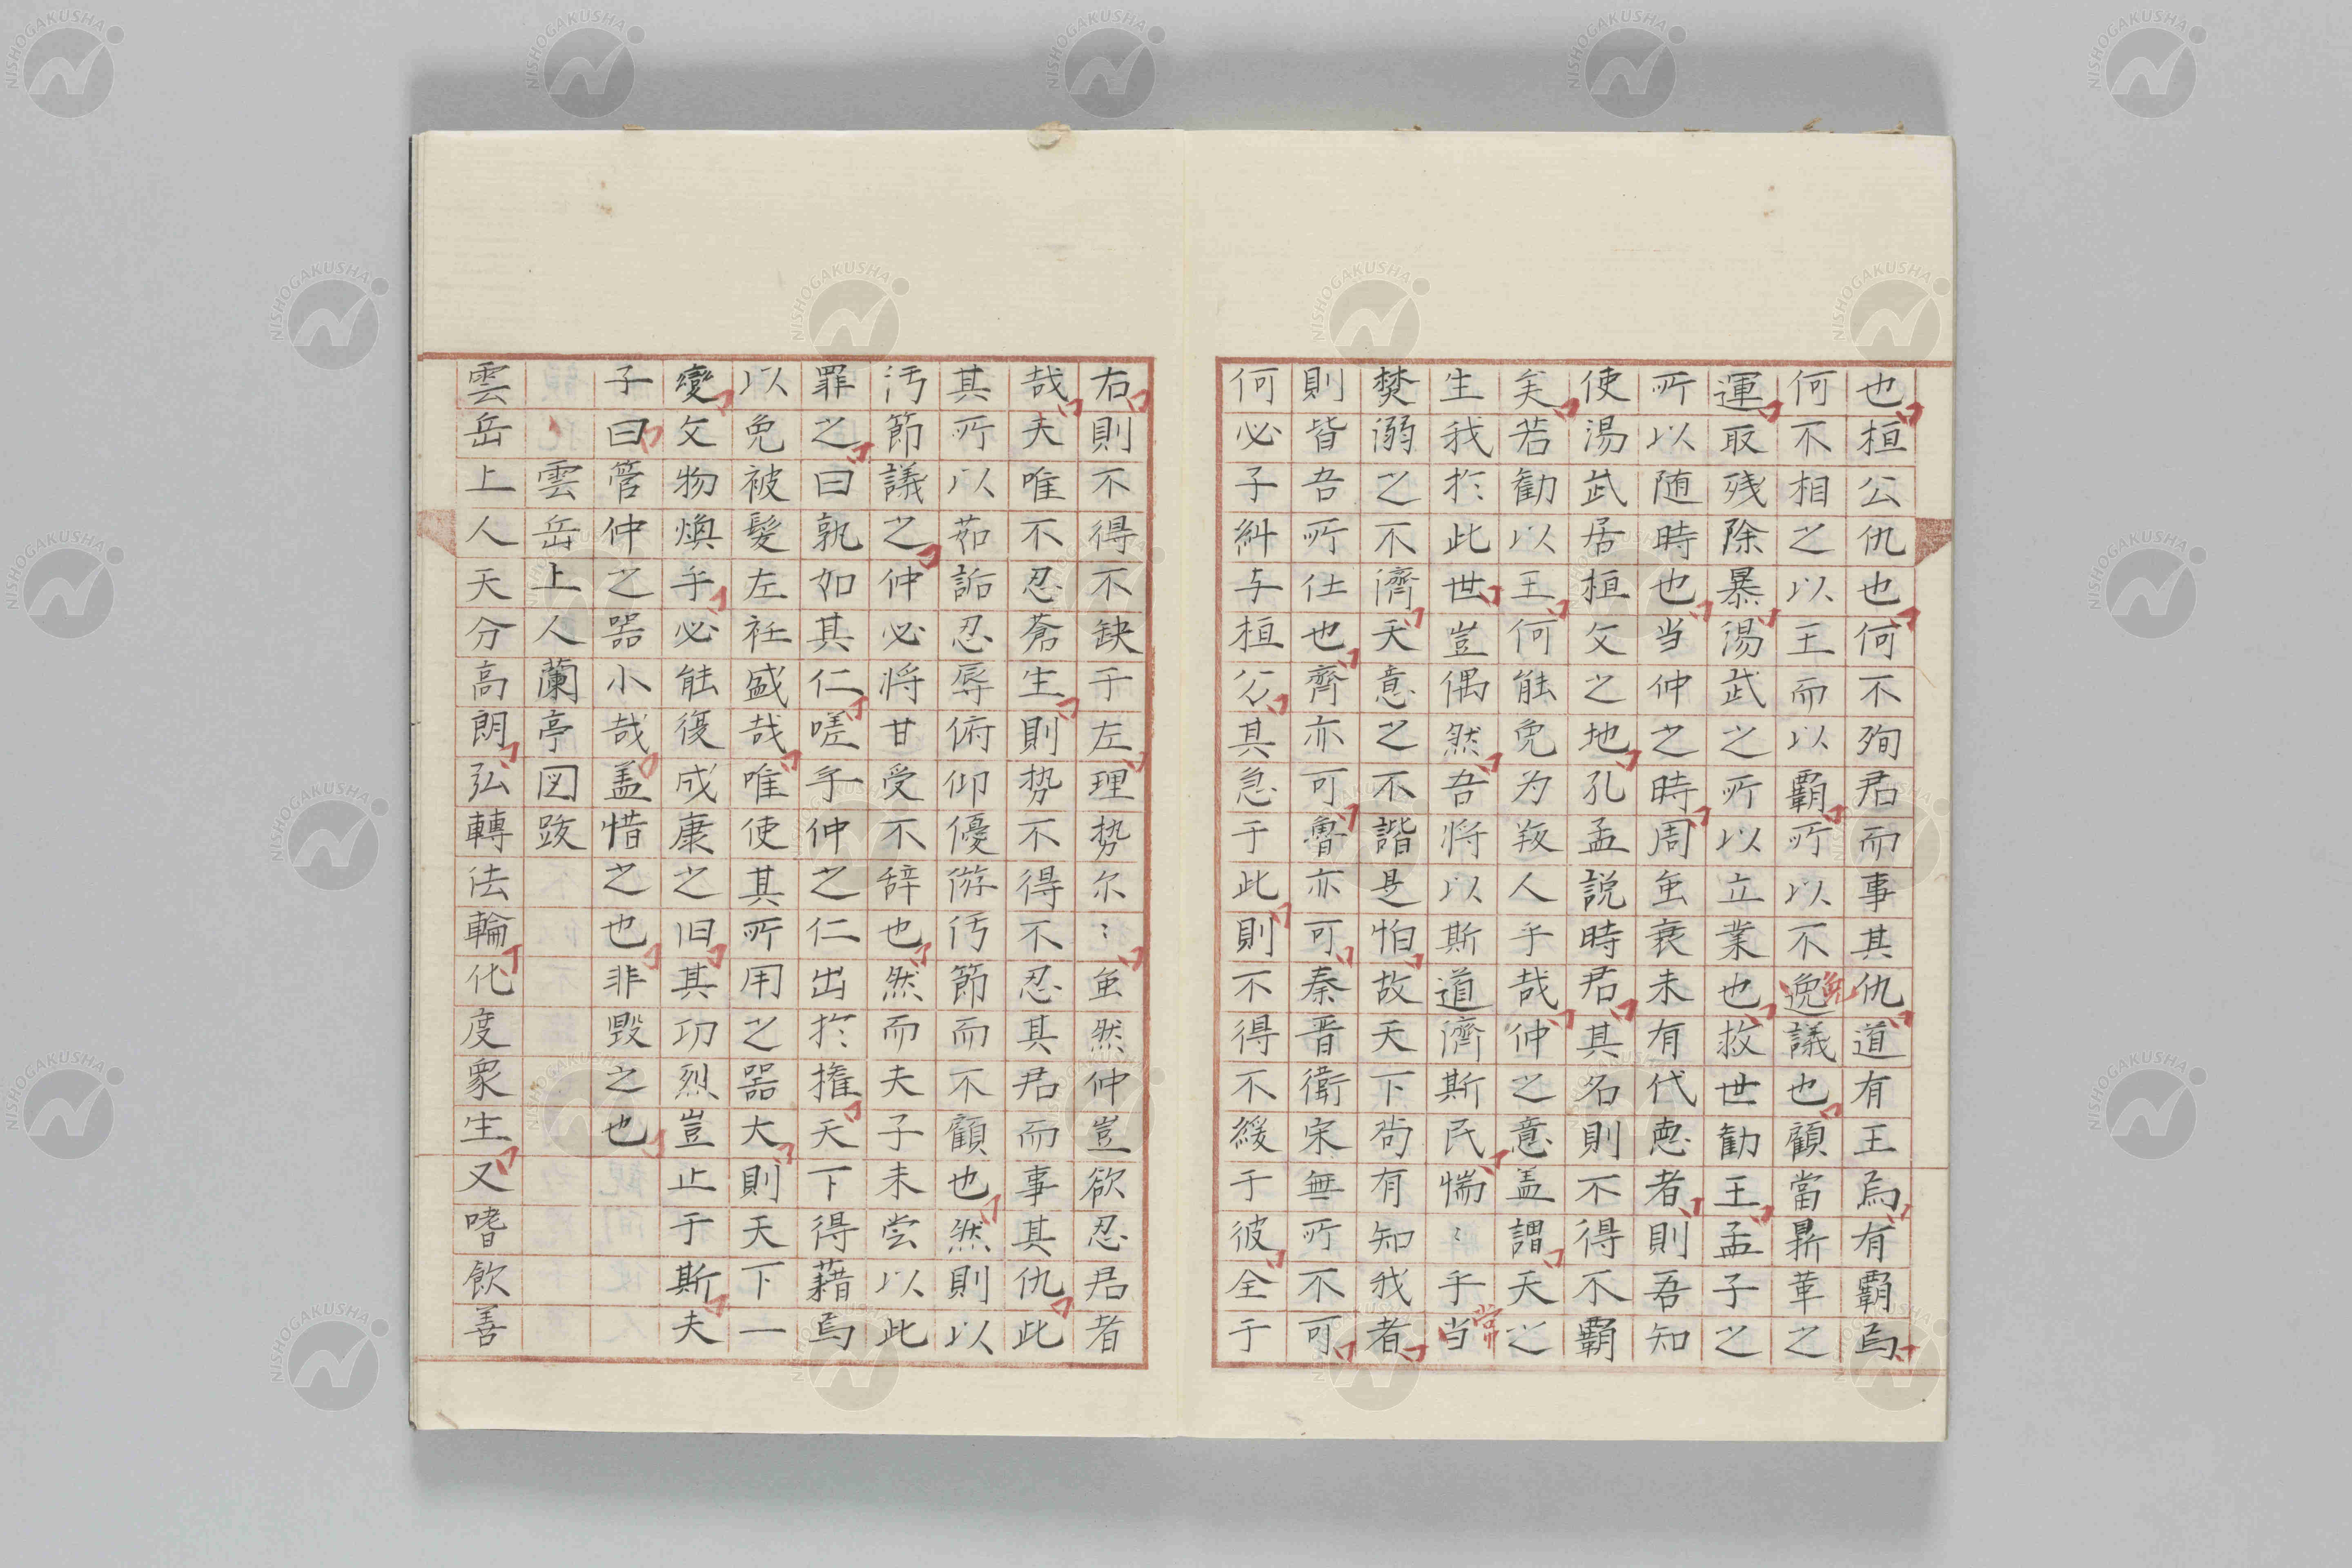 也桓公仇也何不殉君而事其仇道有王焉有覇焉
何不相之以王而以覇所以不逸議也顧當鼎革之
免
運取残除暴湯武之所以立業也救世勧王孟子之
所以随時也当仲之時周虽衰未有代悳者則吾知
使湯武居桓文之地孔孟説時君其名則不得不覇
矣若勧以王何能免为叛人乎哉仲之意盖謂天之
生我扵此世豈偶然吾将以斯道濟斯民惴〻乎当
常
焚溺之不濟天意之不諧是怕故天下尚有知我者
則皆吾所仕也齊亦可魯亦可秦晋衛宋無所不可
何必子糾与桓公其急于此則不得不緩于彼全于
右則不得不缺于左理势尔〻虽然仲豈欲忍君者
哉夫唯不忍蒼生則势不得不忍其君而事其仇此
其所以茹詬忍辱俯仰優游汚節而不顧也然則以
汚節議之仲必将甘受不辞也然而夫子未尝以此
罪之曰孰如其仁嗟乎仲之仁出扵搉天下得藉焉
以免被髮左衽盛哉唯使其所用之器大則天下一
變文物煥乎必能復成康之旧其功烈豈止于斯夫
子曰管仲之器小哉盖惜之也非毀之也
雲岳上人蘭亭図跋
雲岳上人天分高朗弘轉法輪化度衆生又嗜飲善
NISHOGAKUSHA